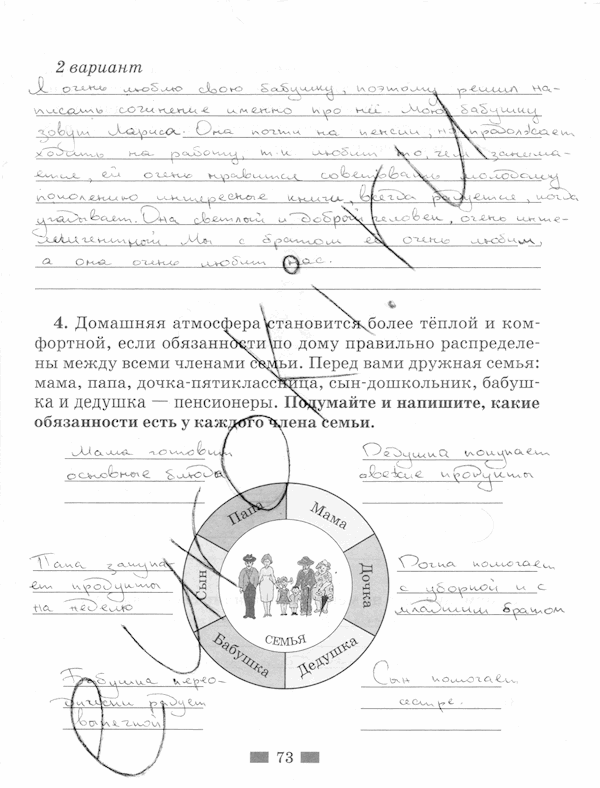 2 вариант
Я очень люблю свою бабушку, поэтому решил на-
писать сочинение именно про неё. Мою бабушку
зовут Лариса. Она почти на пенсии, но продолжает
ходить на работу, т.к любит то, чем занима-
ется, ей очень нравится советовать молодому
поколению интересные книги, всегда радуется, когда
угадывает. Она светлый и добрый человек, очень инте-
лигентный. Мы с братом её очень любим,
а она очень любит нас.
4. Домашняя атмосфера становится более тёплой и ком-
фортной, если обязанности по дому правильно распределе-
ны между всеми членами семьи. Перед вами дружная семья:
мама, папа, дочка-пятиклассница, сын-дошкольник, бабуш-
ка и дедушка — пенсионеры. Подумайте и напишите, какие
обязанности есть у каждого члена семьи.
Мама готовит
основные блюда
Дедушка покупает
свежие продукты
Папа
Мама
Сын
Дочка
Бабушка
Дедушка
СЕМЬЯ
Папа закупа-
ет продукты
на неделю
Дочка помогает
с уборкой и с
младшим братом
Бабушка перио-
дически радует
выпечкой
Сын помогает
сестре.
73